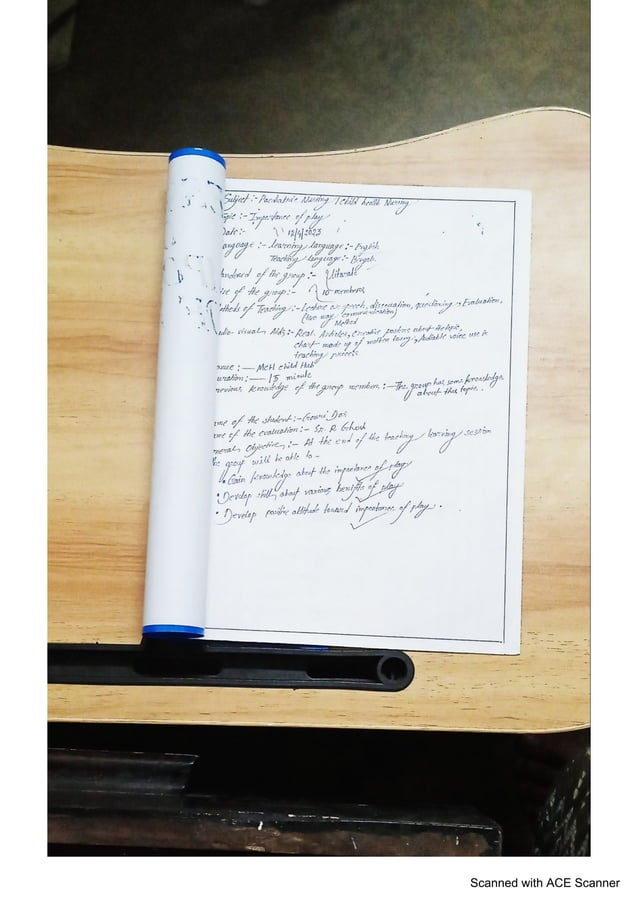 Subject :- Paediatric Nursing / child health Nursing
Topic :- Importance of play
Date:- 12/9/2023
language :- learning language :- English
Teaching language :- Bengali
of the group :- literate
size of the group:- 10 members
Methods of Teaching :- Lecture cum speech, discussion, questioning, Evaluation,
(two way communication)
Method
Audio visual Aids:- Real Articles, creative posters about the topic,
chart made up of Audiable voice use in
teaching process.
:— MCH child Hub
Duration:— 15 minute
previous knowledge of the group member :— The group has some knowledge
about this topic.
name of the student:- Gouri Das
name of the evaluation:- Sr. R Ghosh
General Objective:- At the end of the teaching learning session
the group will be able to -
• Gain knowledge about the importance of play
• Develop skill about various benifits of play
• Develop positive attitude toward importance of play.
Scanned with ACE Scanner